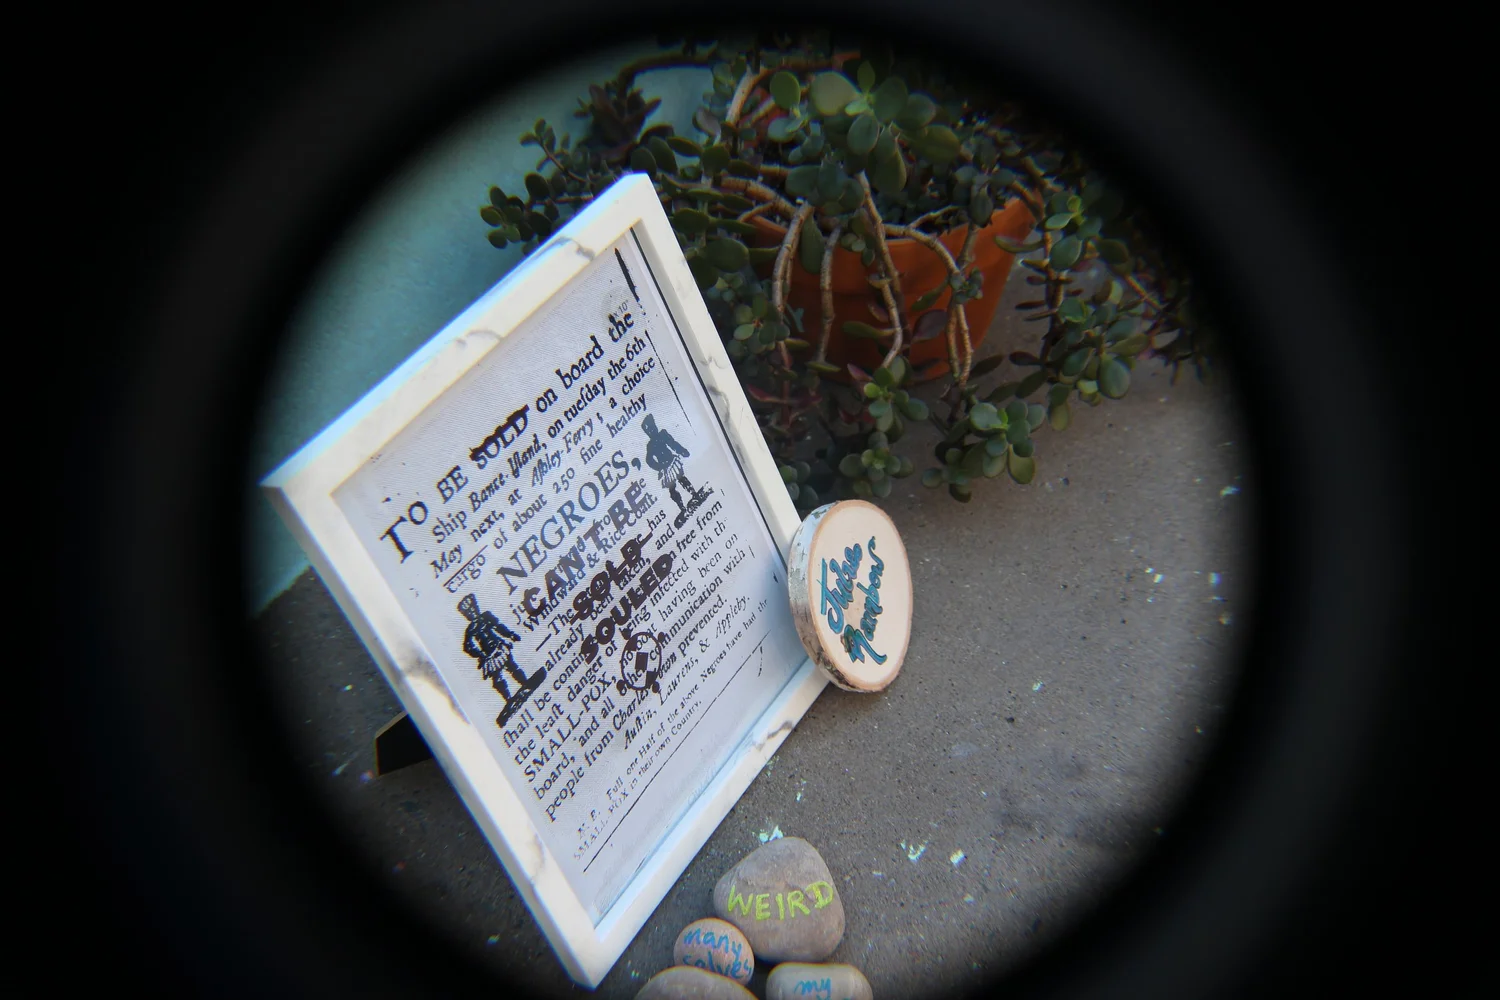 TO BE SOLD on board the
Ship Bance-Iſland, on tueſday the 6th
May next, at Aſhley-Ferry; a choice
cargo of about 250 fine healthy
NEGROES,
CAN'T BE
Windward & Rice Coaſt.
SOLD
SOULED
already been taken, and
ſhall be
the leaſt danger of being infected with
SMALL-POX, no boat having been on
board, and all other communication with
people from Charles-Town prevented.
Auſtin, Laurens, & Appleby.
N. B. Full one Half of the above Negroes have had the
SMALL-POX in their own Country.
Jubie
Rainbow
WEIRD
many
selves
my